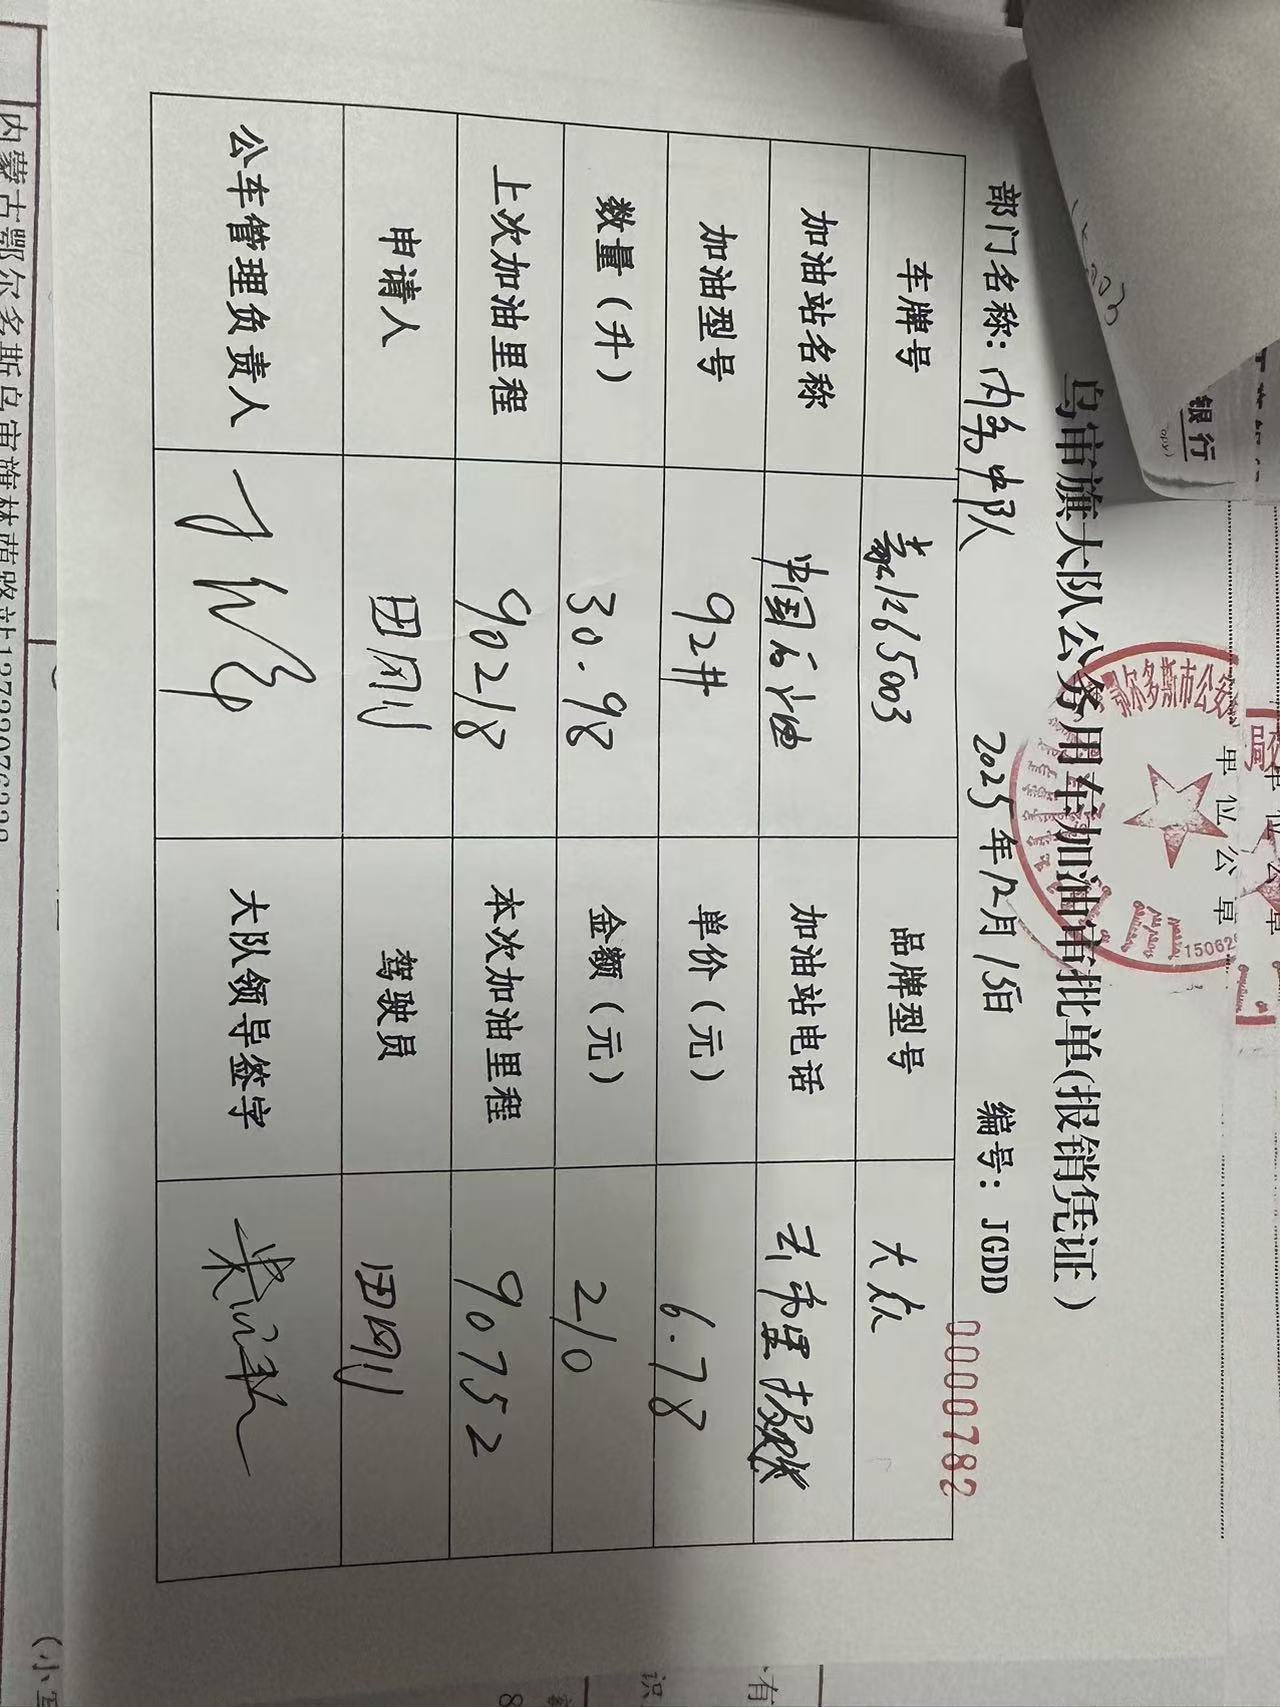 乌审旗大队公务用车加油审批单(报销凭证)
部门名称: 内务中队 2025年12月15日 编号: JGDD 0000782
车牌号 蒙K65003 品牌型号 大众
加油站名称 中国石油 加油站电话
加油型号 92# 单价(元) 6.78
数量(升) 30.98 金额(元) 210
上次加油里程 90218 本次加油里程 90752
申请人 田刚 驾驶员 田刚
公车管理负责人 大队领导签字
鄂尔多斯市公安
15062
单位公章
银行
内蒙古鄂尔多斯乌审旗林荫路